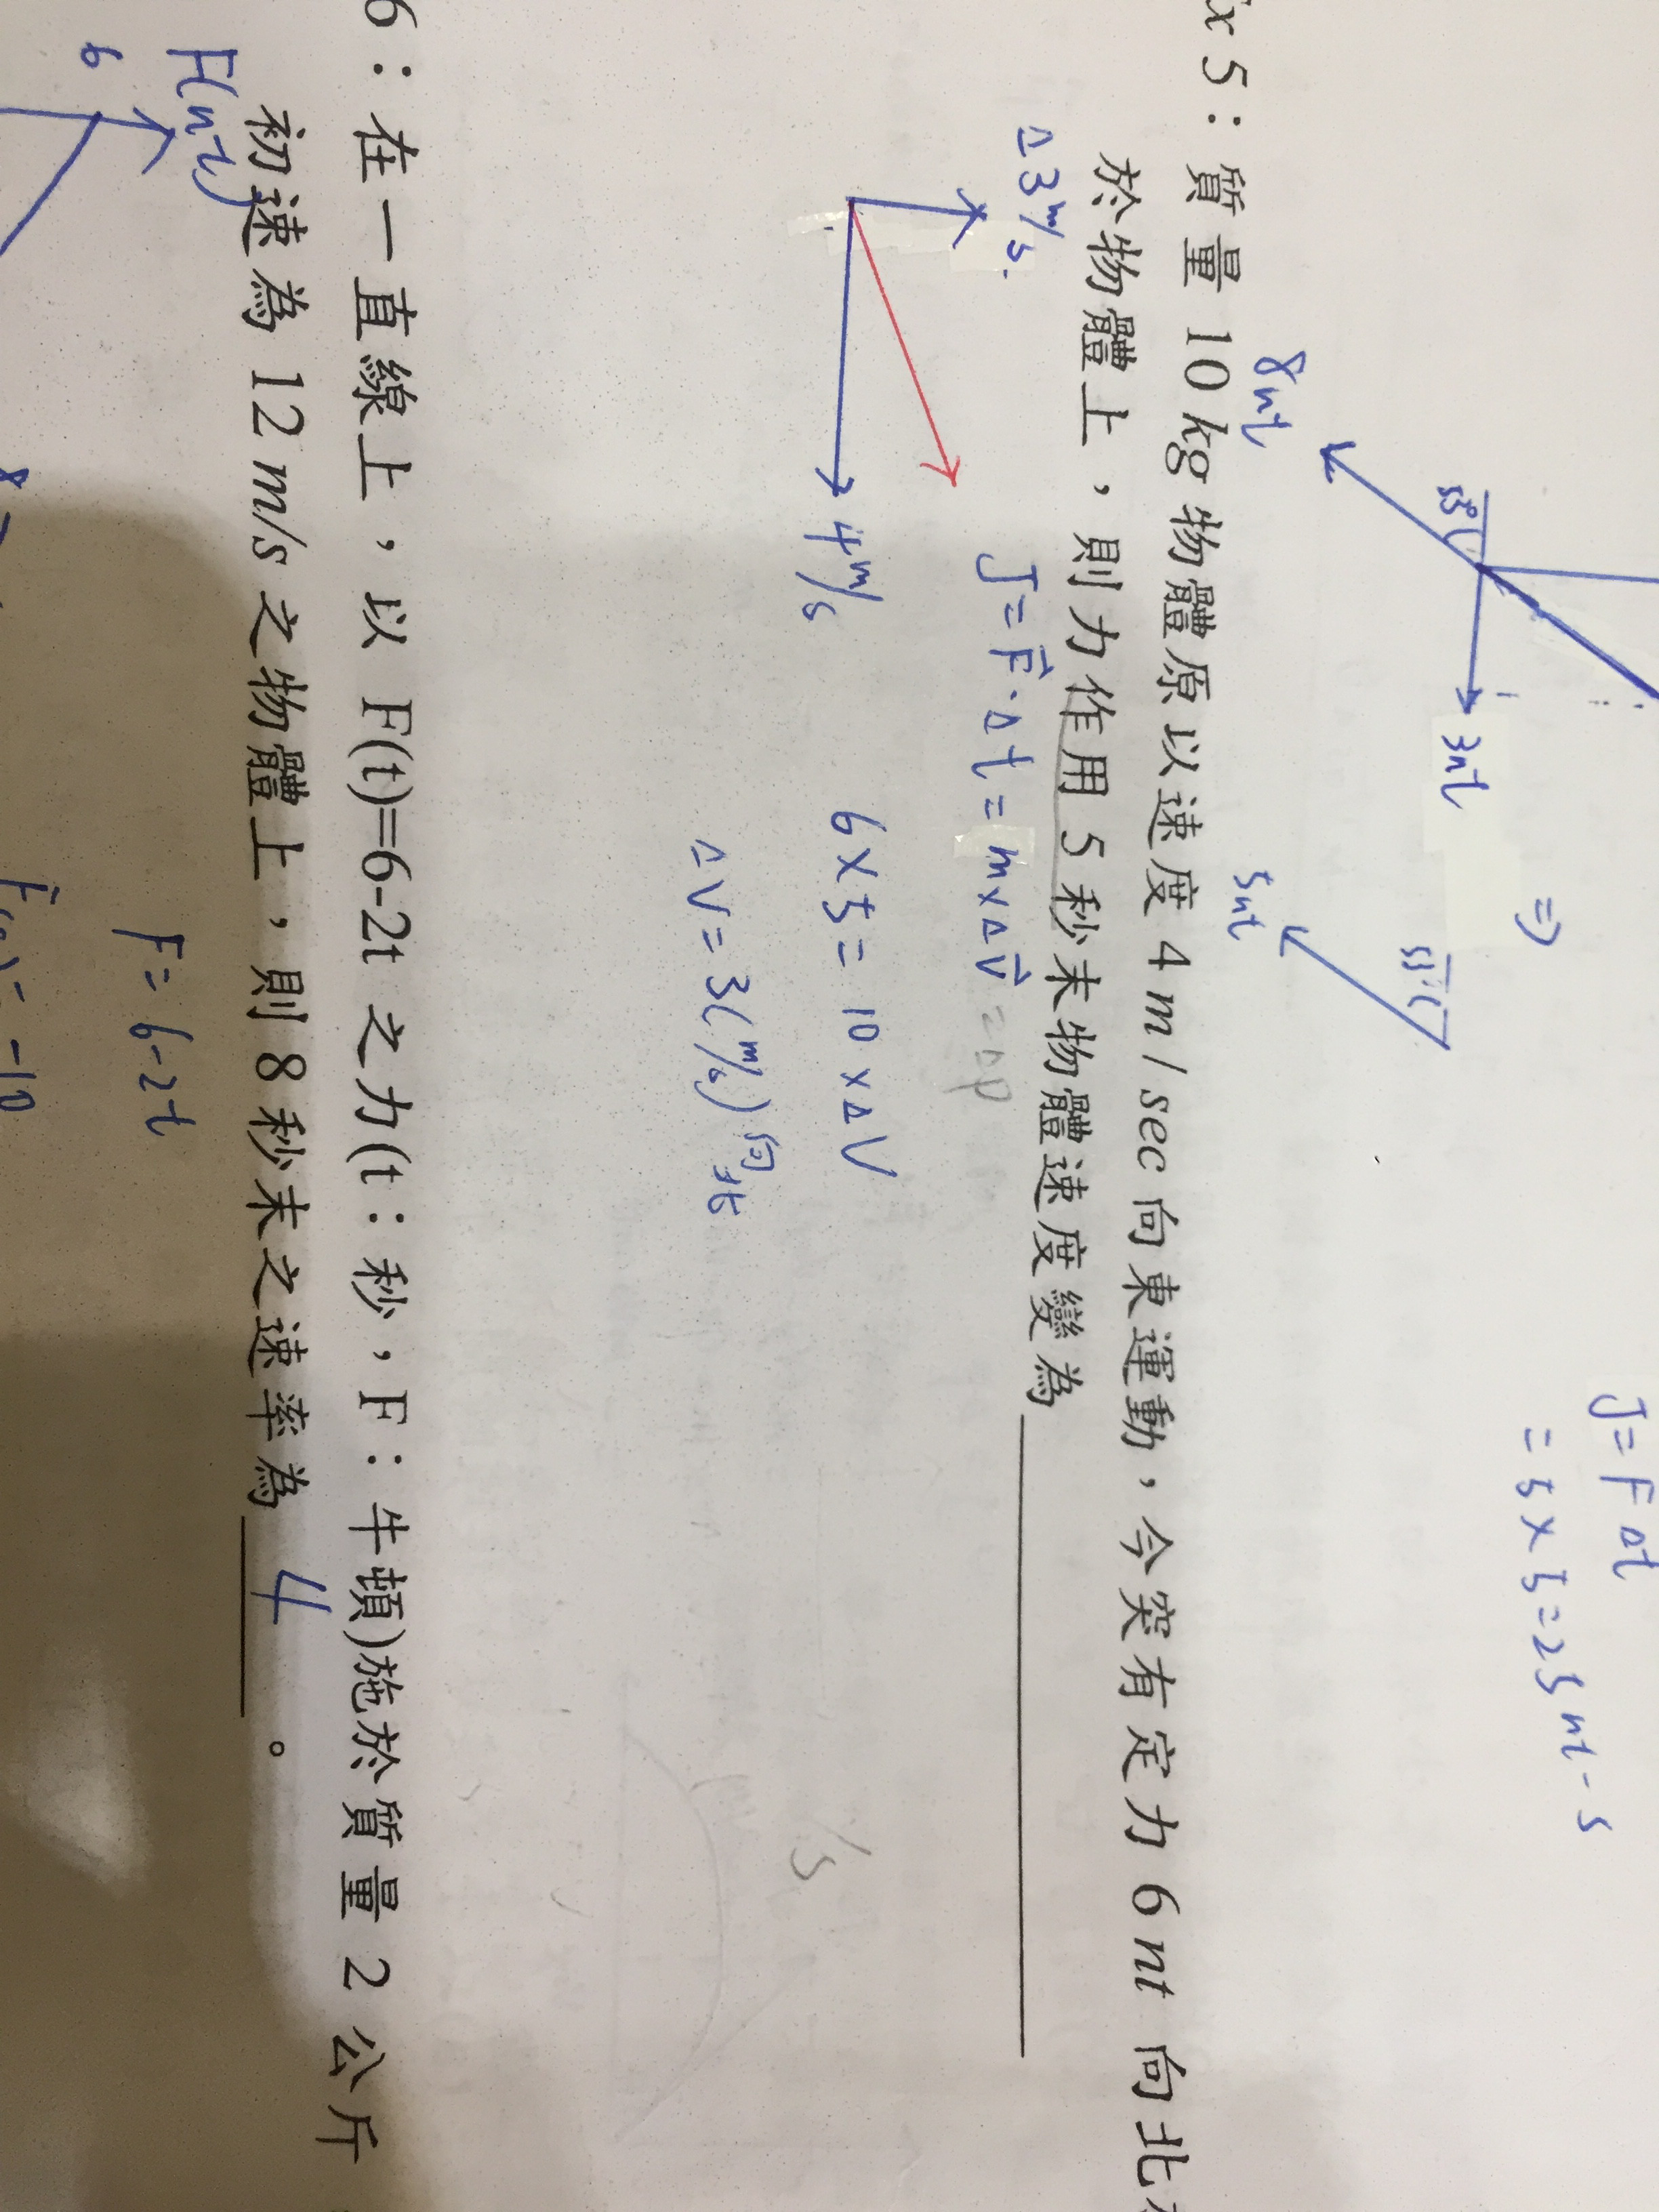 J = F Δt
⇒
= 5 × 5 = 25 nt-s
53°
3nt
53°
8nt
5nt
x 5：質量 10 kg 物體原以速度 4 m / sec 向東運動，今突有定力 6 nt 向北
於物體上，則力作用 5 秒末物體速度變為
Δ3 m/s.
J = F⃗ · Δt = m × ΔV⃗ = Δp
4 m/s
6 × 5 = 10 × ΔV
/s
ΔV = 3 (m/s) 向北
6：在一直線上，以 F(t)=6-2t 之力(t：秒，F：牛頓)施於質量 2 公斤
初速為 12 m/s 之物體上，則 8 秒末之速率為 4 。
F(nt)
F = 6-2t
6
8
= -10